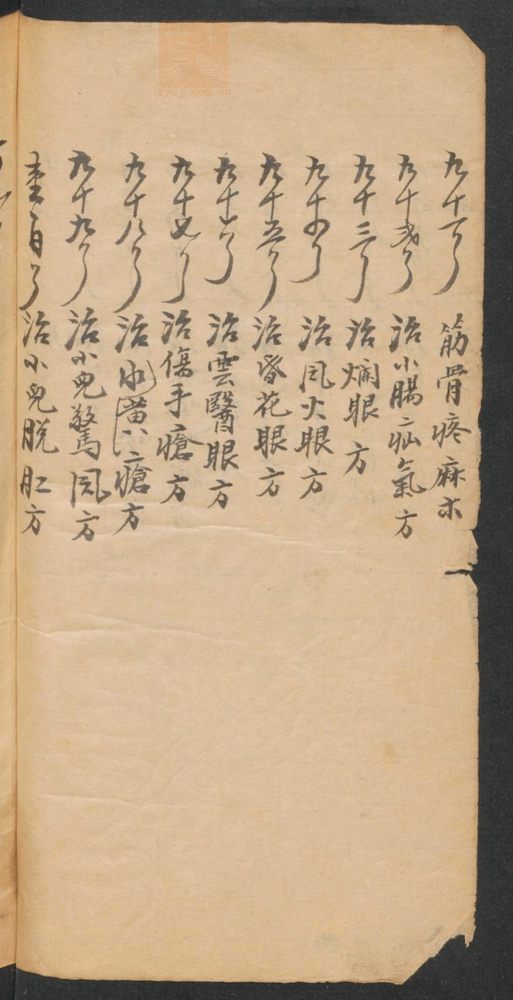 九十一 筋骨疼麻木
九十弍 治小腸疝氣方
九十三 治爛眼方
九十四 治風火眼方
九十五 治昏花眼方
九十六 治雲醫眼方
九十七 治傷手瘡方
九十八 治黃瘡方
九十九 治小兒驚風方
壹百 治小兒脫肛方